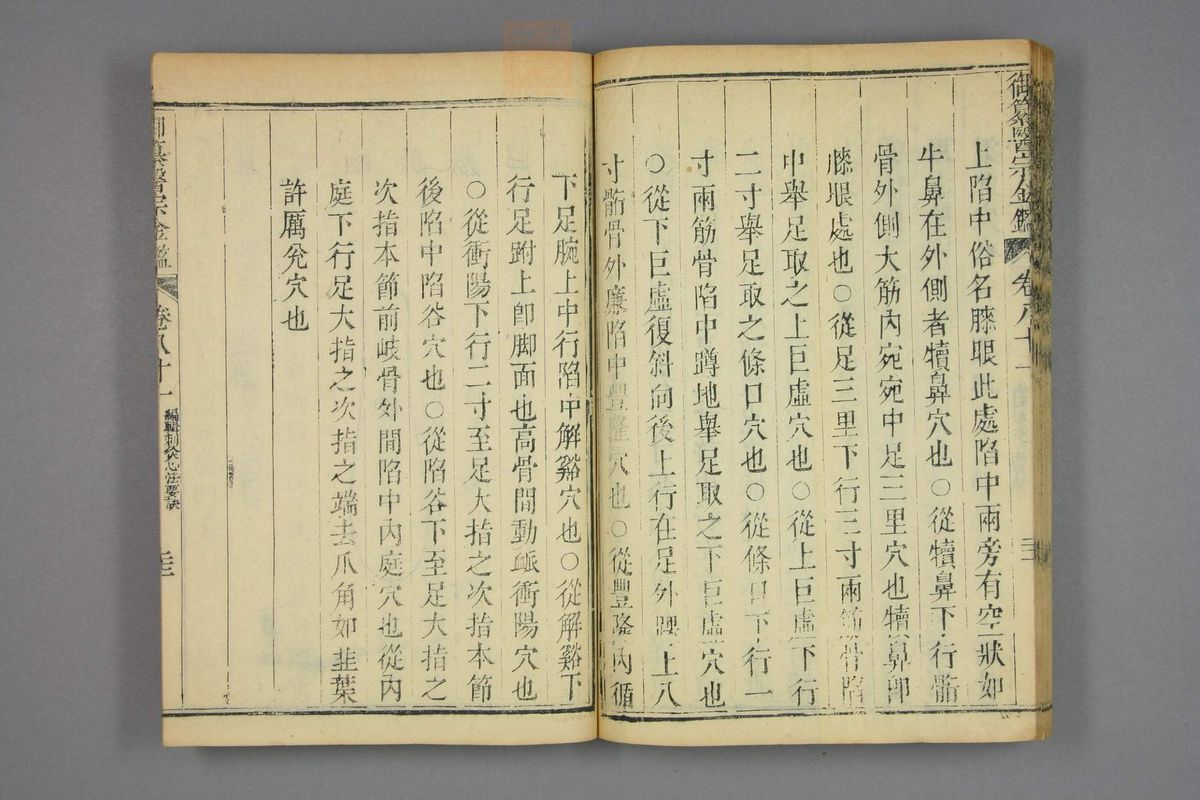 御纂醫宗金鑑
卷八十一
上陷中俗名膝眼此處陷中兩旁有空狀如
牛鼻在外側者犢鼻穴也○從犢鼻下行䯒
骨外側大筋內宛宛中足三里穴也犢鼻卽
膝眼處也○從足三里下行三寸兩筋骨陷
中舉足取之上巨虛穴也○從上巨虛下行
二寸舉足取之條口穴也○從條口下行一
寸兩筋骨陷中蹲地舉足取之下巨虛穴也
○從下巨虛復斜向後上行在足外踝上八
寸䯒骨外廉陷中豐隆穴也○從豐隆內循
下足腕上中行陷中解谿穴也○從解谿下
行足跗上卽脚面也高骨間動脈衝陽穴也
○從衝陽下行二寸至足大指之次指本節
後陷中陷谷穴也○從陷谷下至足大指之
次指本節前岐骨外間陷中內庭穴也從內
庭下行足大指之次指之端去爪角如韭葉
許厲兌穴也
御纂醫宗金鑑
卷八十一
編輯刺灸心法要訣